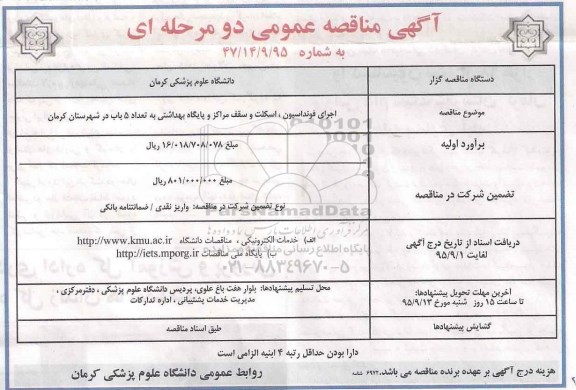 آگهی مناقصه عمومی دو مرحله ای
به شماره ۴۷/۱۴/۹/۹۵
دستگاه مناقصه گزار
دانشگاه علوم پزشکی کرمان
موضوع مناقصه
اجرای فونداسیون ، اسکلت و سقف مراکز و پایگاه بهداشتی به تعداد ۵ باب در شهرستان کرمان
برآورد اولیه
مبلغ ۱۶/۰۱۸/۷۰۸/۰۷۸ ریال
تضمین شرکت در مناقصه
مبلغ ۸۰۱/۰۰۰/۰۰۰ ریال
نوع تضمین شرکت در مناقصه: واریز نقدی / ضمانتنامه بانکی
دریافت اسناد از تاریخ درج آگهی
لغایت ۹۵/۹/۱
الف) خدمات الکترونیکی ، مناقصات دانشگاه http://www.kmu.ac.ir
ب) پایگاه ملی مناقصات http://iets.mporg.ir
آخرین مهلت تحویل پیشنهادها:
تا ساعت ۱۵ روز شنبه مورخ ۹۵/۹/۱۳
محل تسلیم پیشنهادها: بلوار هفت باغ علوی، پردیس دانشگاه علوم پزشکی ، دفترمرکزی ،
مدیریت خدمات پشتیبانی ، اداره تدارکات
گشایش پیشنهادها
طبق اسناد مناقصه
دارا بودن حداقل رتبه ۴ ابنیه الزامی است
هزینه درج آگهی بر عهده برنده مناقصه می باشد.
روابط عمومی دانشگاه علوم پزشکی کرمان
ParsNamadData
پایگاه اطلاع رسانی مناقصه و مزایده
۰۲۱-۸۸۳۴۹۶۷۰-۵